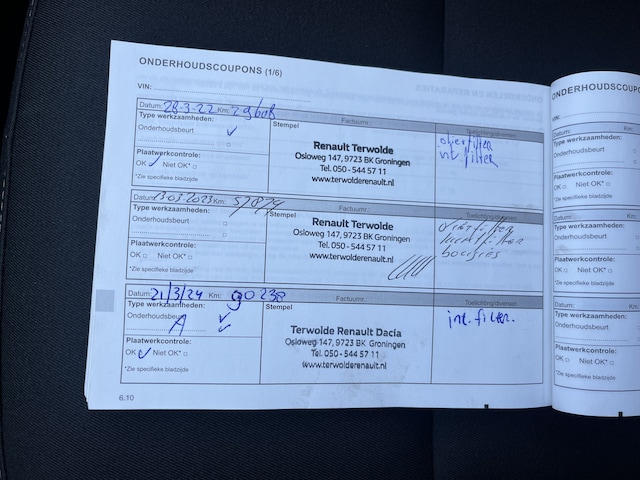 ONDERHOUDSCOUPONS (1/6)
VIN:
Datum: 28-3-22 Km: 29608 Factuurnr.: Toelichting/diversen
Type werkzaamheden:
Onderhoudsbeurt
Stempel
Renault Terwolde
Osloweg 147, 9723 BK Groningen
Tel. 050 - 544 57 11
www.terwolderenault.nl
oliefilter
int filter
Plaatwerkcontrole:
OK Niet OK*
*Zie specifieke bladzijde
Datum: 13-03-2023 Km: 57879 Factuurnr.: Toelichting/diversen
Type werkzaamheden:
Onderhoudsbeurt
Stempel
Renault Terwolde
Osloweg 147, 9723 BK Groningen
Tel. 050 - 544 57 11
www.terwolderenault.nl
luchtfilter
boesjes
Plaatwerkcontrole:
OK Niet OK*
*Zie specifieke bladzijde
Datum: 21/3/24 Km: 90238 Factuurnr.: Toelichting/diversen
Type werkzaamheden:
Onderhoudsbeurt
A
Stempel
Terwolde Renault Dacia
Osloweg 147, 9723 BK Groningen
Tel. 050 - 544 57 11
www.terwolderenault.nl
int. filter.
Plaatwerkcontrole:
OK Niet OK*
*Zie specifieke bladzijde
6.10
ONDERHOUDSCOUP
VIN:
Datum:
Type werkzaamheden:
Onderhoudsbeurt
Plaatwerkcontrole:
OK Niet OK*
*Zie specifieke bladzijde
Datum:
Type werkzaamheden:
Onderhoudsbeurt
Plaatwerkcontrole:
OK Niet OK*
*Zie specifieke bladzijde
Datum:
Type werkzaamheden:
Onderhoudsbeurt
Plaatwerkcontrole:
OK Niet OK*
*Zie specifieke bladzijde